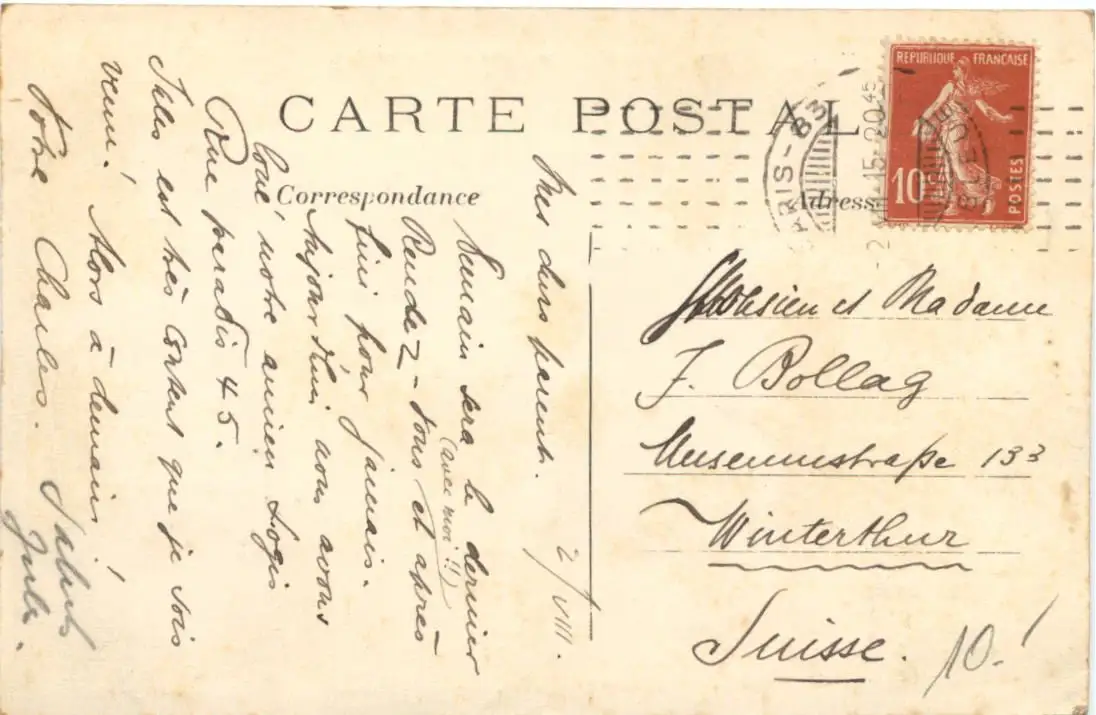 CARTE POSTALE
Correspondance
Adresse
REPUBLIQUE FRANÇAISE
10c
POSTES
PARIS-83
15-20 45
2/VIII.
Mes chers parents.
Demain sera le dernier
(avec moi!!)
Rendez-vous et après
fini pour jamais.
Aujourd'hui nous avons
loué, notre ancien Logis
Rue paradis 45.
Jules est très content que je sois
venu! Alors à demain!
Votre Charles.
Saluts
Jules.
Monsieur et Madame
J. Bollag
Museumstraße 133
Winterthur
Suisse.
10.!